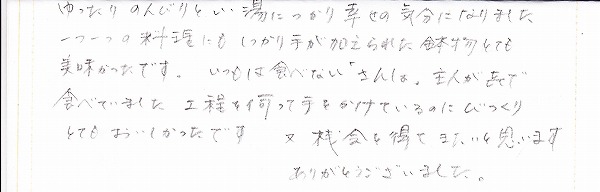 ゆったりのんびりといい湯につかり幸せの気分になりました
一つ一つの料理にもしっかり手が加えられた鉢物とても
美味かったです。いつもは食べない「さんしょ。主人が喜んで
食べていました 工程を伺って手をかけているのにびっくり
とてもおいしかったです 又機会を得てきたいと思います
ありがとうございました。